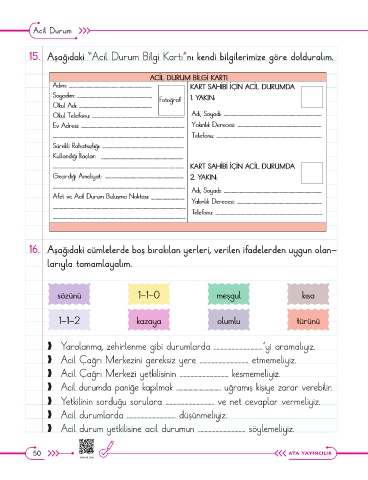 Acil Durum
15. Aşağıdaki "Acil Durum Bilgi Kartı"nı kendi bilgilerimize göre dolduralım.
ACİL DURUM BİLGİ KARTI
Adım:
Soyadım:
Okul Adı:
Okul Telefonu:
Ev Adresi:
Fotoğraf
Sürekli Rahatsızlığı:
Kullandığı İlaçlar:
Geçirdiği Ameliyat:
Afet ve Acil Durum Buluşma Noktası:
KART SAHİBİ İÇİN ACİL DURUMDA
1. YAKIN:
Adı, Soyadı:
Yakınlık Derecesi:
Telefonu:
KART SAHİBİ İÇİN ACİL DURUMDA
2. YAKIN:
Adı, Soyadı:
Yakınlık Derecesi:
Telefonu:
16. Aşağıdaki cümlelerde boş bırakılan yerleri, verilen ifadelerden uygun olan-
larıyla tamamlayalım.
sözünü 1-1-0 meşgul kısa
1-1-2 kazaya olumlu türünü
Yaralanma, zehirlenme gibi durumlarda ........................'yi aramalıyız.
Acil Çağrı Merkezini gereksiz yere ........................ etmemeliyiz.
Acil Çağrı Merkezi yetkilisinin ........................ kesmemeliyiz.
Acil durumda paniğe kapılmak ........................ uğramış kişiye zarar verebilir.
Yetkilinin sorduğu sorulara ........................ ve net cevaplar vermeliyiz.
Acil durumlarda ........................ düşünmeliyiz.
Acil durum yetkilisine acil durumun ........................ söylemeliyiz.
50
ATA YAYINCILIK